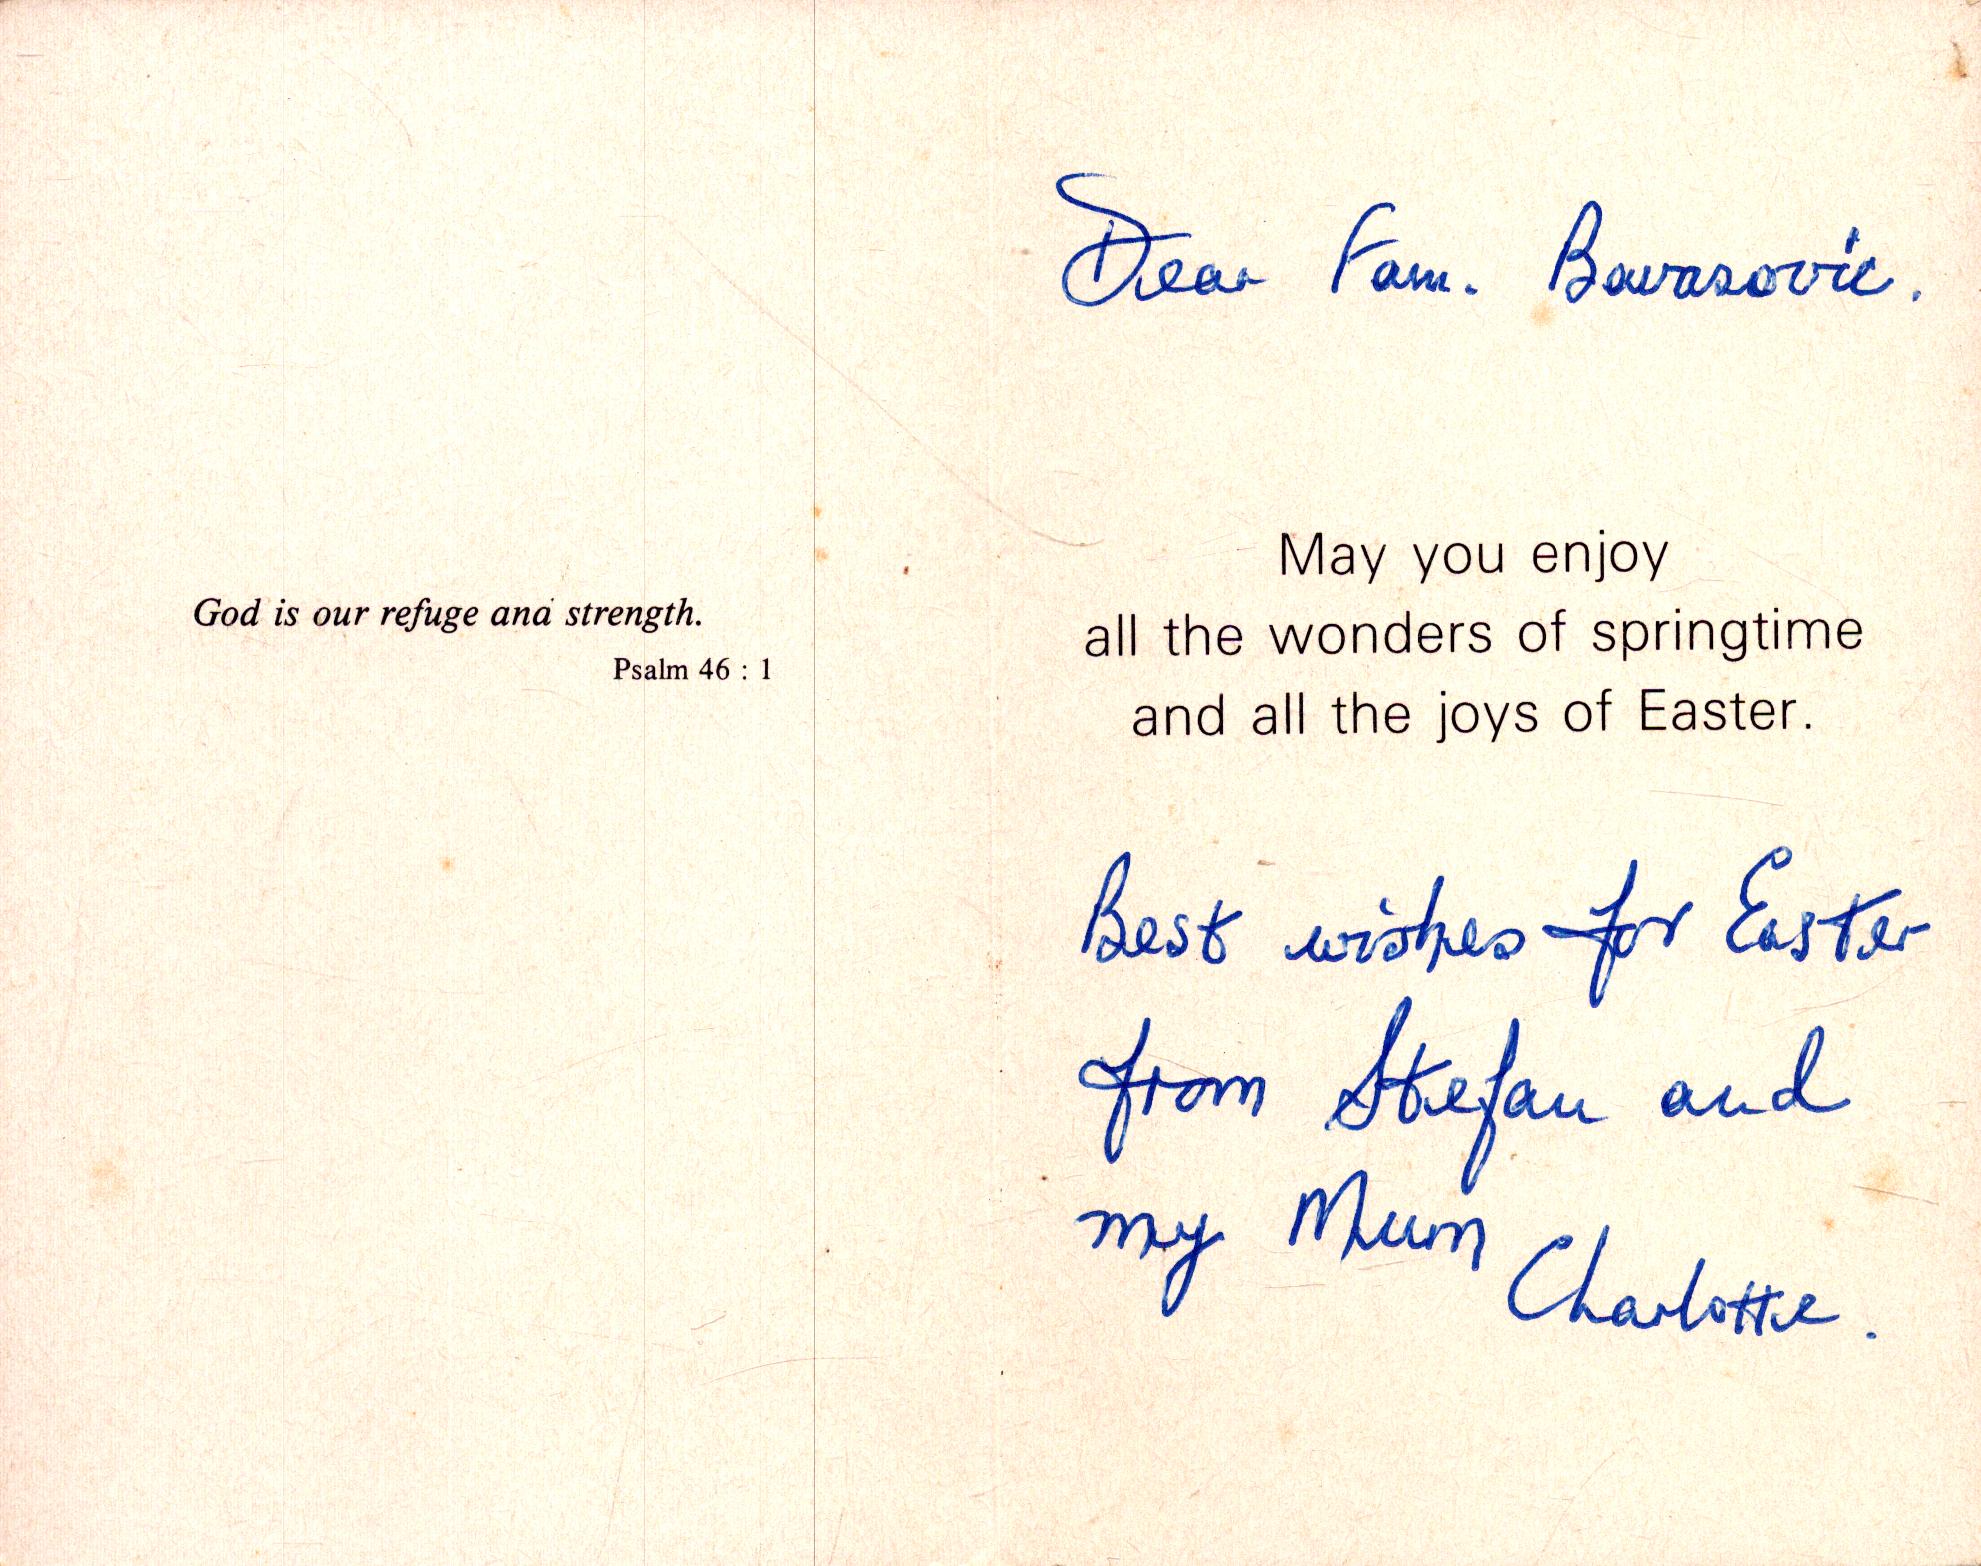 God is our refuge and strength.
Psalm 46 : 1
Dear Fam.
May you enjoy
all the wonders of springtime
and all the joys of Easter.
Best wishes for Easter
from Stefan and
my Mum
Charlotte.